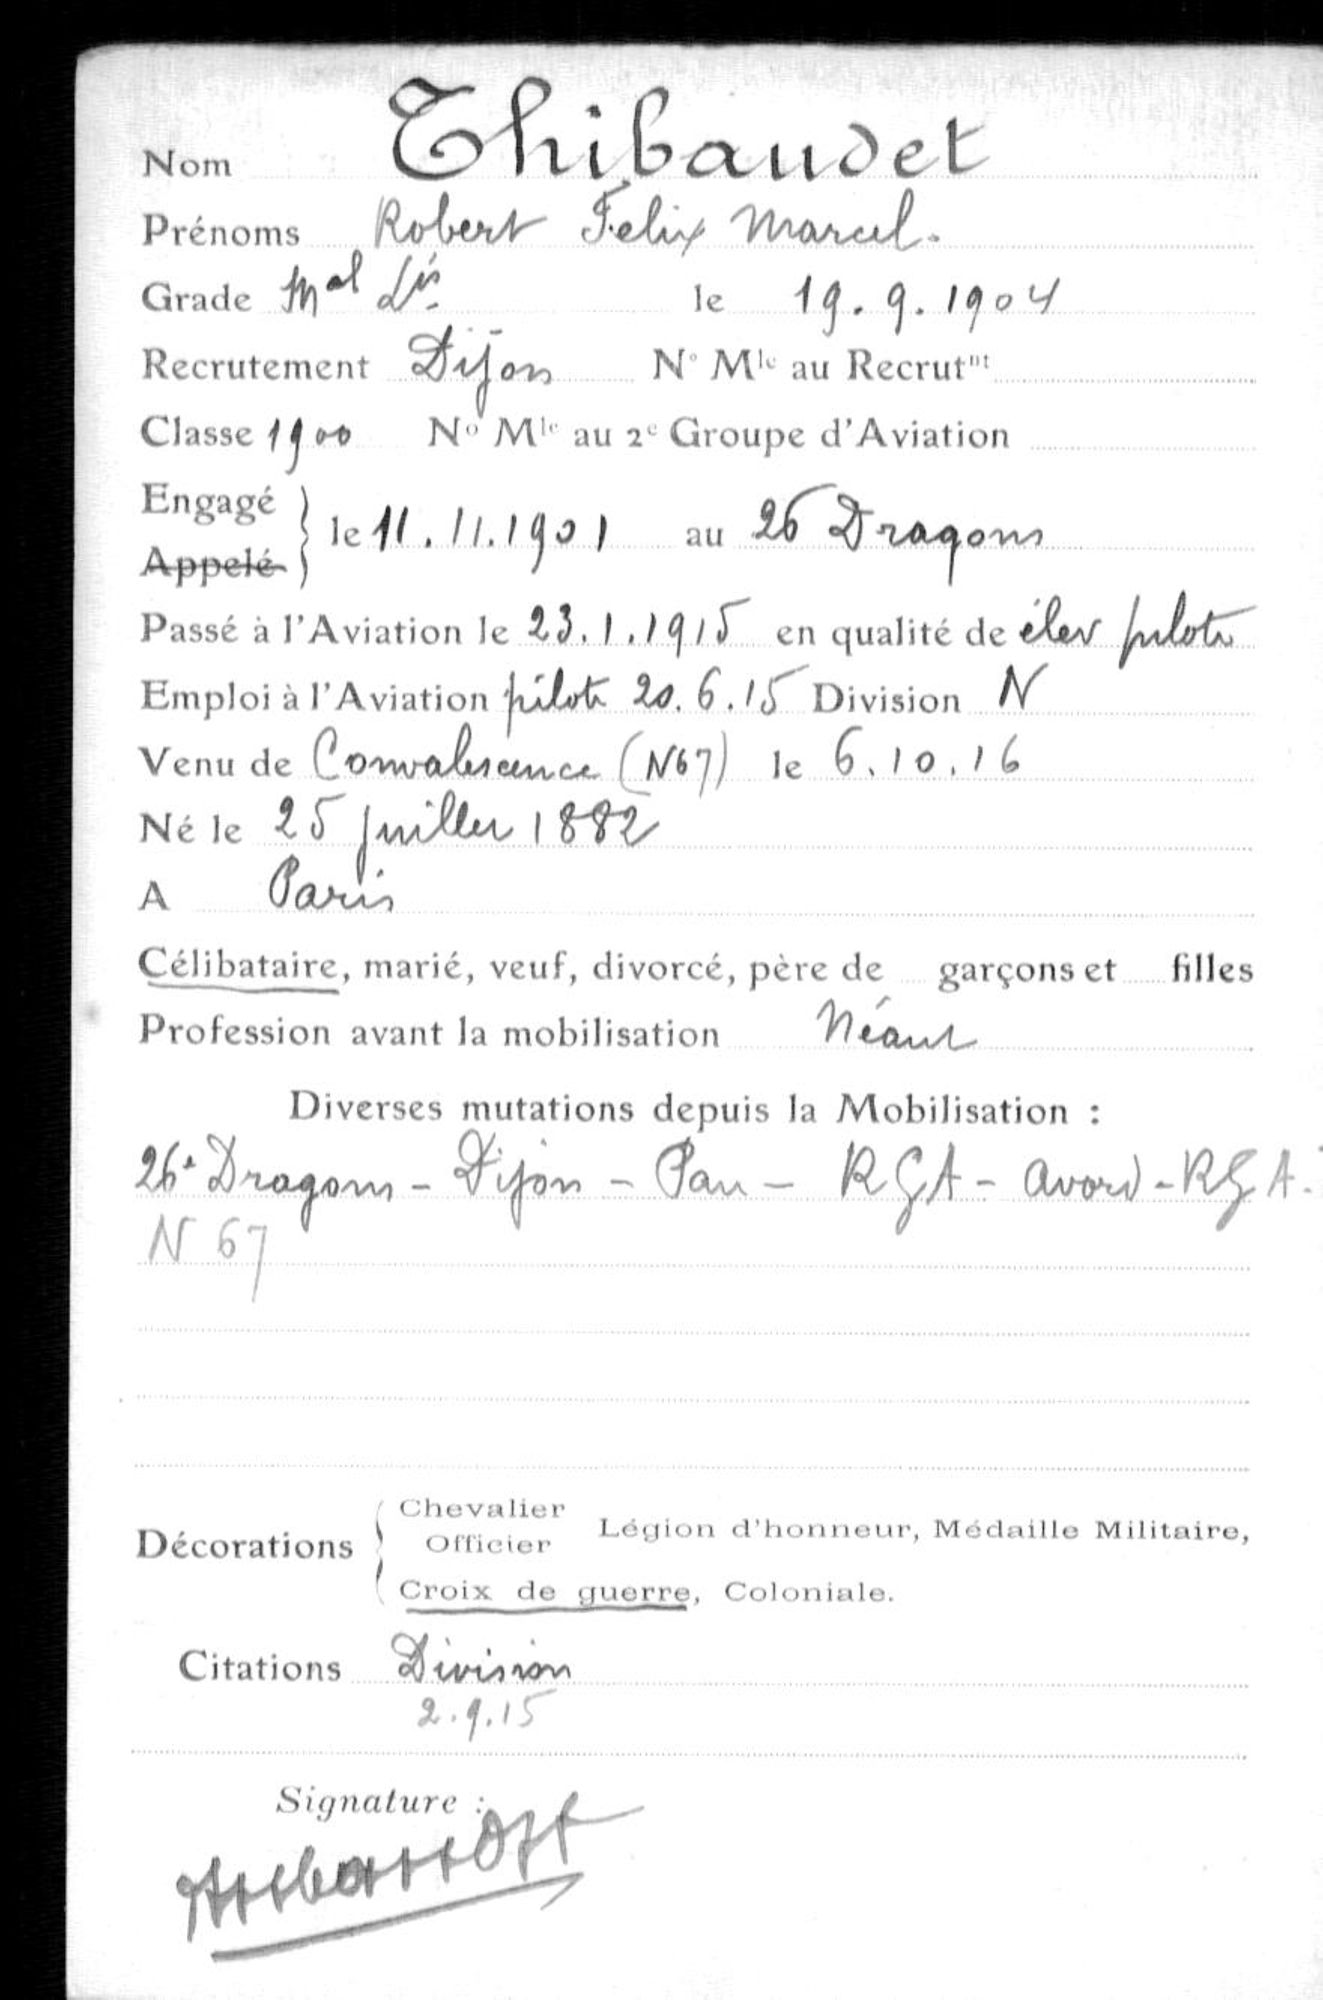 Nom Thibaudet
Prénoms Robert Felix Marcel.
Grade Mal Lis le 19.9.1904
Recrutement Dijon N° Mle au Recrutnt
Classe 1900 No Mle au 2e Groupe d'Aviation
Engagé
Appelé
le 11.11.1901 au 26 Dragons
Passé à l'Aviation le 23.1.1915 en qualité de élev pilote
Emploi à l'Aviation pilote 20.6.15 Division N
Venu de Convalescence (N67) le 6.10.16
Né le 25 juillet 1882
A Paris
Célibataire, marié, veuf, divorcé, père de garçons et filles
Profession avant la mobilisation Néant
Diverses mutations depuis la Mobilisation :
26e Dragons - Dijon - Pau - RGA - Avord - RGA.
N 67
Chevalier
Officier
Légion d'honneur, Médaille Militaire,
Décorations
Croix de guerre, Coloniale.
Citations Division
2.9.15
Signature :